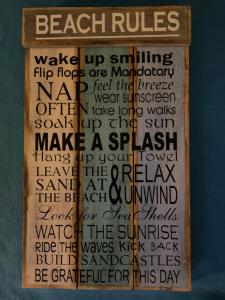 BEACH RULES
wake up smiling
Flip flops are Mandatory
NAP feel the breeze
OFTEN wear sunscreen
take long walks
soak up the sun
MAKE A SPLASH
Hang up your Towel
LEAVE THE SAND AT THE BEACH
& RELAX UNWIND
Look for Sea Shells
WATCH THE SUNRISE
RIDE THE waves KICK BACK
BUILD SANDCASTLES
BE GRATEFUL FOR THIS DAY